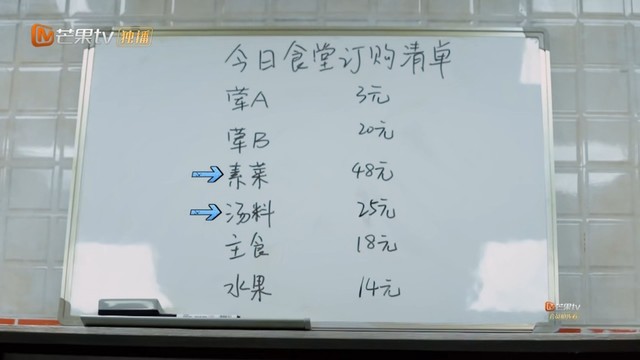 芒果tv 独播
今日食堂订购清单
荤A 3元
荤B 20元
素菜 48元
汤料 25元
主食 18元
水果 14元
芒果tv